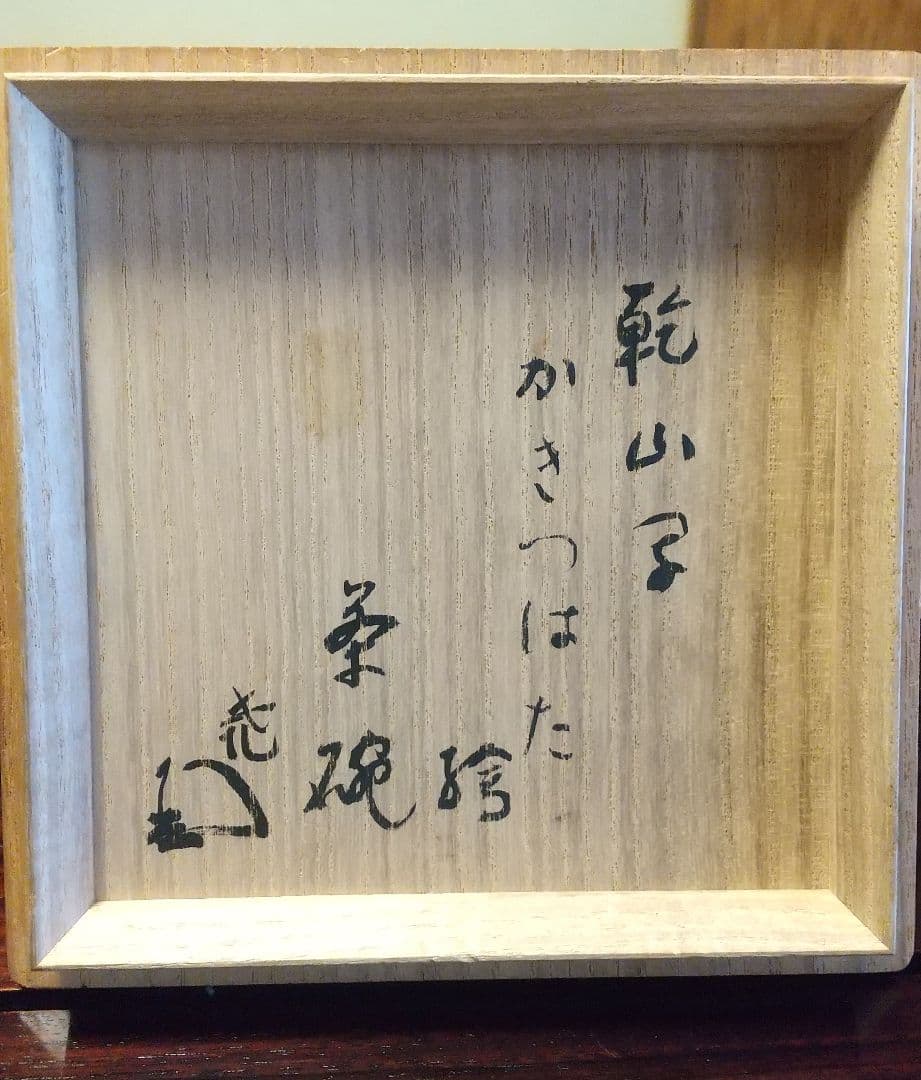 乾山写
かきつはた
絵
茶碗